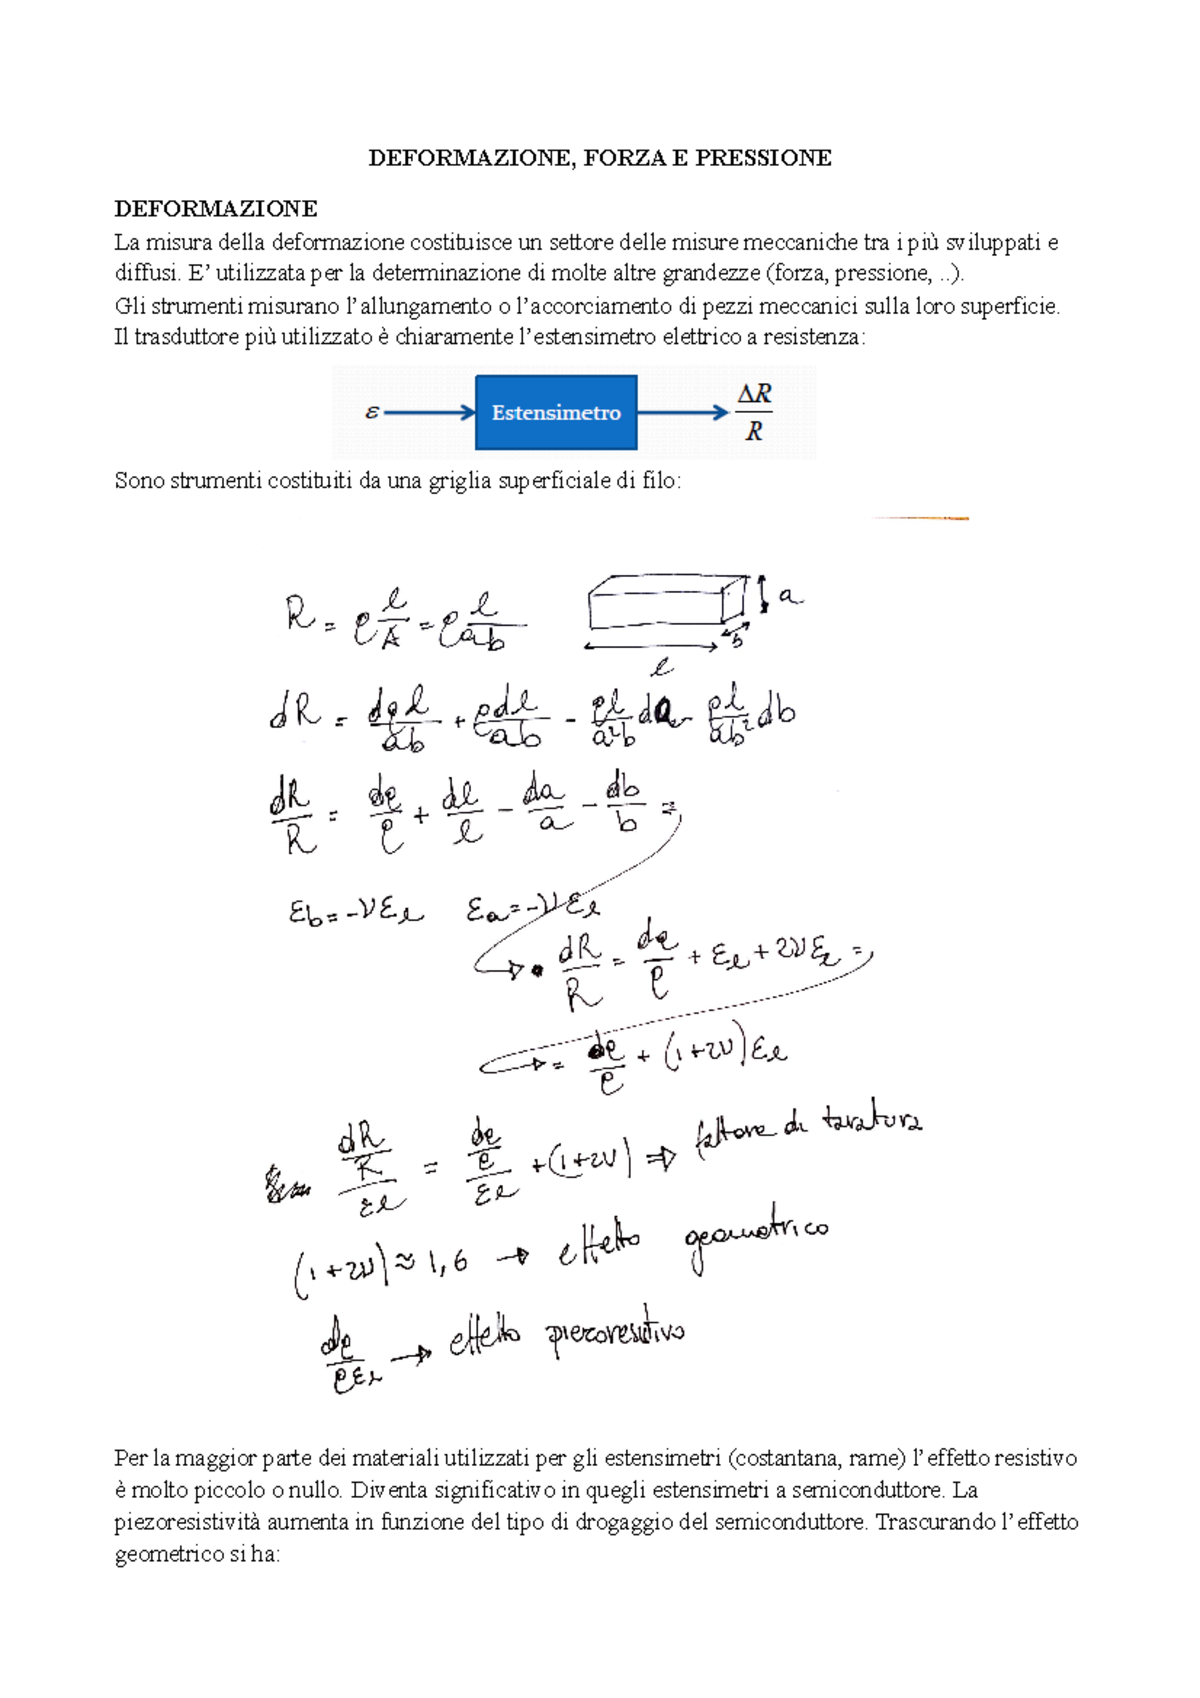 DEFORMAZIONE, FORZA E PRESSIONE
DEFORMAZIONE
La misura della deformazione costituisce un settore delle misure meccaniche tra i più sviluppati e
diffusi. E’ utilizzata per la determinazione di molte altre grandezze (forza, pressione, ..).
Gli strumenti misurano l’allungamento o l’accorciamento di pezzi meccanici sulla loro superficie.
Il trasduttore più utilizzato è chiaramente l’estensimetro elettrico a resistenza:
ε Estensimetro ΔR/R
Sono strumenti costituiti da una griglia superficiale di filo:
R = ρ l/A = ρ l/ab
a
b
l
dR = dρ l/ab + ρ dl/ab - ρl/a²b da - ρl/ab² db
dR/R = dρ/ρ + dl/l - da/a - db/b =
εb = -νεl εa = -νεl
dR/R = dρ/ρ + εl + 2νεl =
= dρ/ρ + (1+2ν)εl
(dR/R)/εl = (dρ/ρ)/εl + (1+2ν) ⇒ fattore di taratura
(1+2ν) ≈ 1,6 → effetto geometrico
dρ/ρεl → effetto piezoresistivo
Per la maggior parte dei materiali utilizzati per gli estensimetri (costantana, rame) l’effetto resistivo
è molto piccolo o nullo. Diventa significativo in quegli estensimetri a semiconduttore. La
piezoresistività aumenta in funzione del tipo di drogaggio del semiconduttore. Trascurando l’effetto
geometrico si ha: